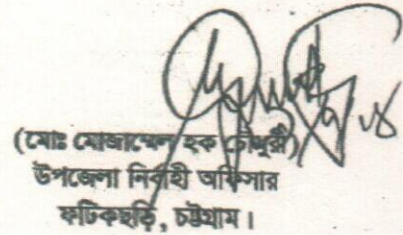 (মোঃ মোজাম্মেল হক চৌধুরী)
উপজেলা নির্বাহী অফিসার
ফটিকছড়ি, চট্টগ্রাম।